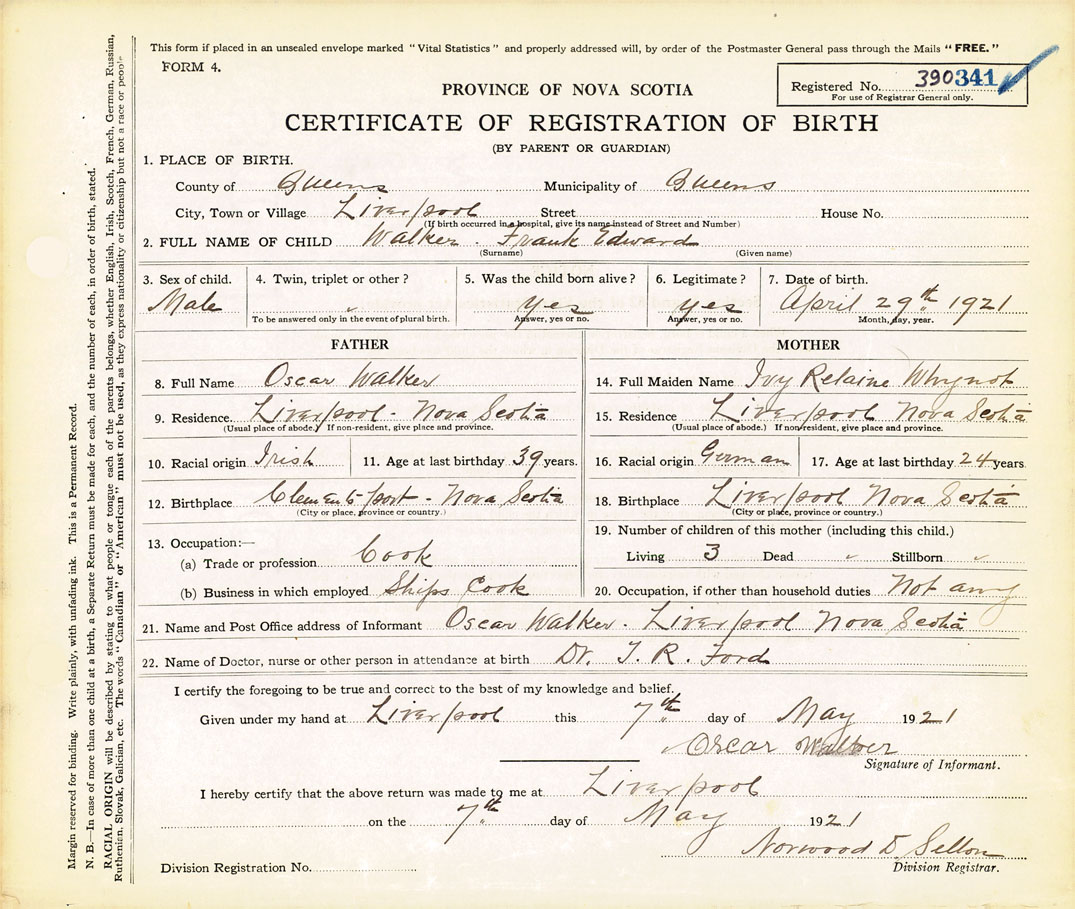 This form if placed in an unsealed envelope marked "Vital Statistics" and properly addressed will, by order of the Postmaster General pass through the Mails "FREE."
FORM 4.
Registered No. 390341
For use of Registrar General only.
PROVINCE OF NOVA SCOTIA
CERTIFICATE OF REGISTRATION OF BIRTH
(BY PARENT OR GUARDIAN)
1. PLACE OF BIRTH.
County of Queens Municipality of Queens
City, Town or Village Liverpool Street House No.
(If birth occurred in a hospital, give its name instead of Street and Number)
2. FULL NAME OF CHILD Walker. Frank Edward
(Surname) (Given name)
3. Sex of child. 4. Twin, triplet or other? 5. Was the child born alive? 6. Legitimate? 7. Date of birth.
Male " yes yes April 29th 1921
To be answered only in the event of plural birth. Answer, yes or no. Answer, yes or no. Month, day, year.
FATHER MOTHER
8. Full Name Oscar Walker 14. Full Maiden Name Ivy Relaine Whynot
9. Residence. Liverpool - Nova Scotia 15. Residence Liverpool Nova Scotia
(Usual place of abode.) If non-resident, give place and province. (Usual place of abode.) If non-resident, give place and province.
10. Racial origin Irish 11. Age at last birthday 39 years. 16. Racial origin German 17. Age at last birthday 24 years.
12. Birthplace Clementsport - Nova Scotia 18. Birthplace Liverpool Nova Scotia
(City or place, province or country.) (City or place, province or country.)
13. Occupation:— 19. Number of children of this mother (including this child.)
(a) Trade or profession Cook Living 3 Dead " Stillborn "
(b) Business in which employed Ships Cook 20. Occupation, if other than household duties Not any
21. Name and Post Office address of Informant Oscar Walker. Liverpool Nova Scotia
22. Name of Doctor, nurse or other person in attendance at birth Dr. J. R. Ford
I certify the foregoing to be true and correct to the best of my knowledge and belief.
Given under my hand at Liverpool this 7th day of May 1921
Oscar Walker
Signature of Informant.
I hereby certify that the above return was made to me at Liverpool
on the 7th day of May 1921
Norwood D Sellon
Division Registrar.
Division Registration No.
Margin reserved for binding. Write plainly, with unfading ink. This is a Permanent Record.
N. B.—In case of more than one child at a birth, a Separate Return must be made for each, and the number of each, in order of birth, stated.
RACIAL ORIGIN will be described by stating to what people or tongue each of the parents belongs, whether English, Irish, Scotch, French, German, Russian,
Ruthenian, Slovak, Galician, etc. The words "Canadian" or "American" must not be used, as they express nationality or citizenship but not a race or people